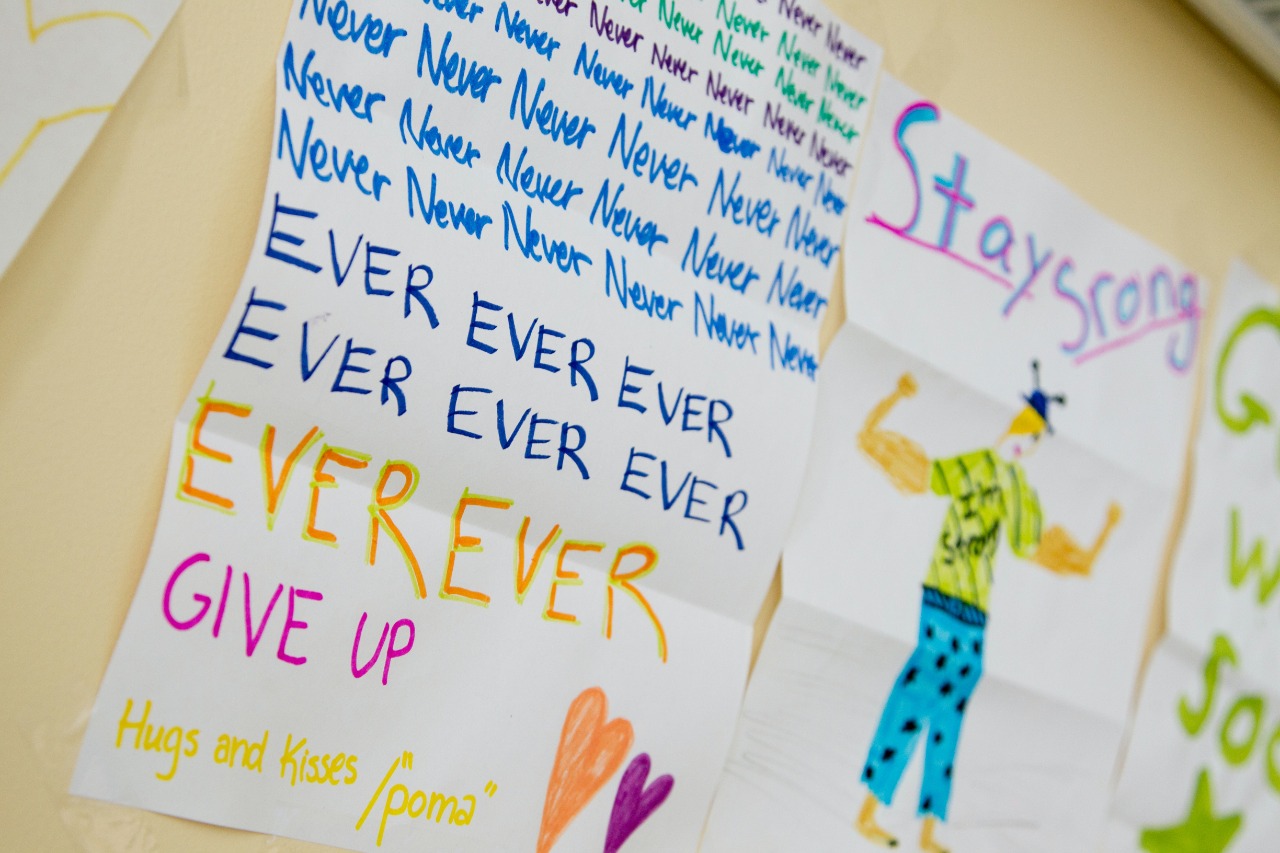 Never Never
Never Never Never
Never Never Never Never
Never Never Never Never Never
Never Never Never Never Never Never
Never Never Never Never Never Never
Never Never Never Never Never Never
Never Never Never Never Never Never
EVER EVER EVER
EVER EVER EVER
EVER EVER
GIVE UP
Hugs and Kisses /"poma"
Stay srong
I'm
strong